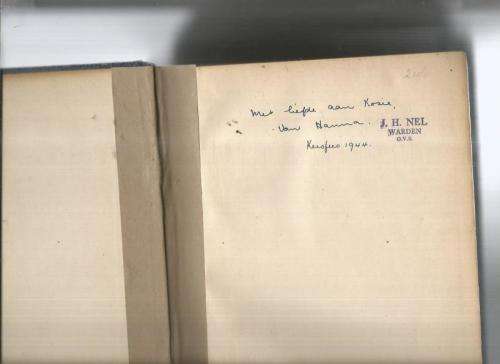 Met liefde aan Kosie,
van Hanna.
Kersfees 1944.
J. H. NEL
WARDEN
O.V.S.